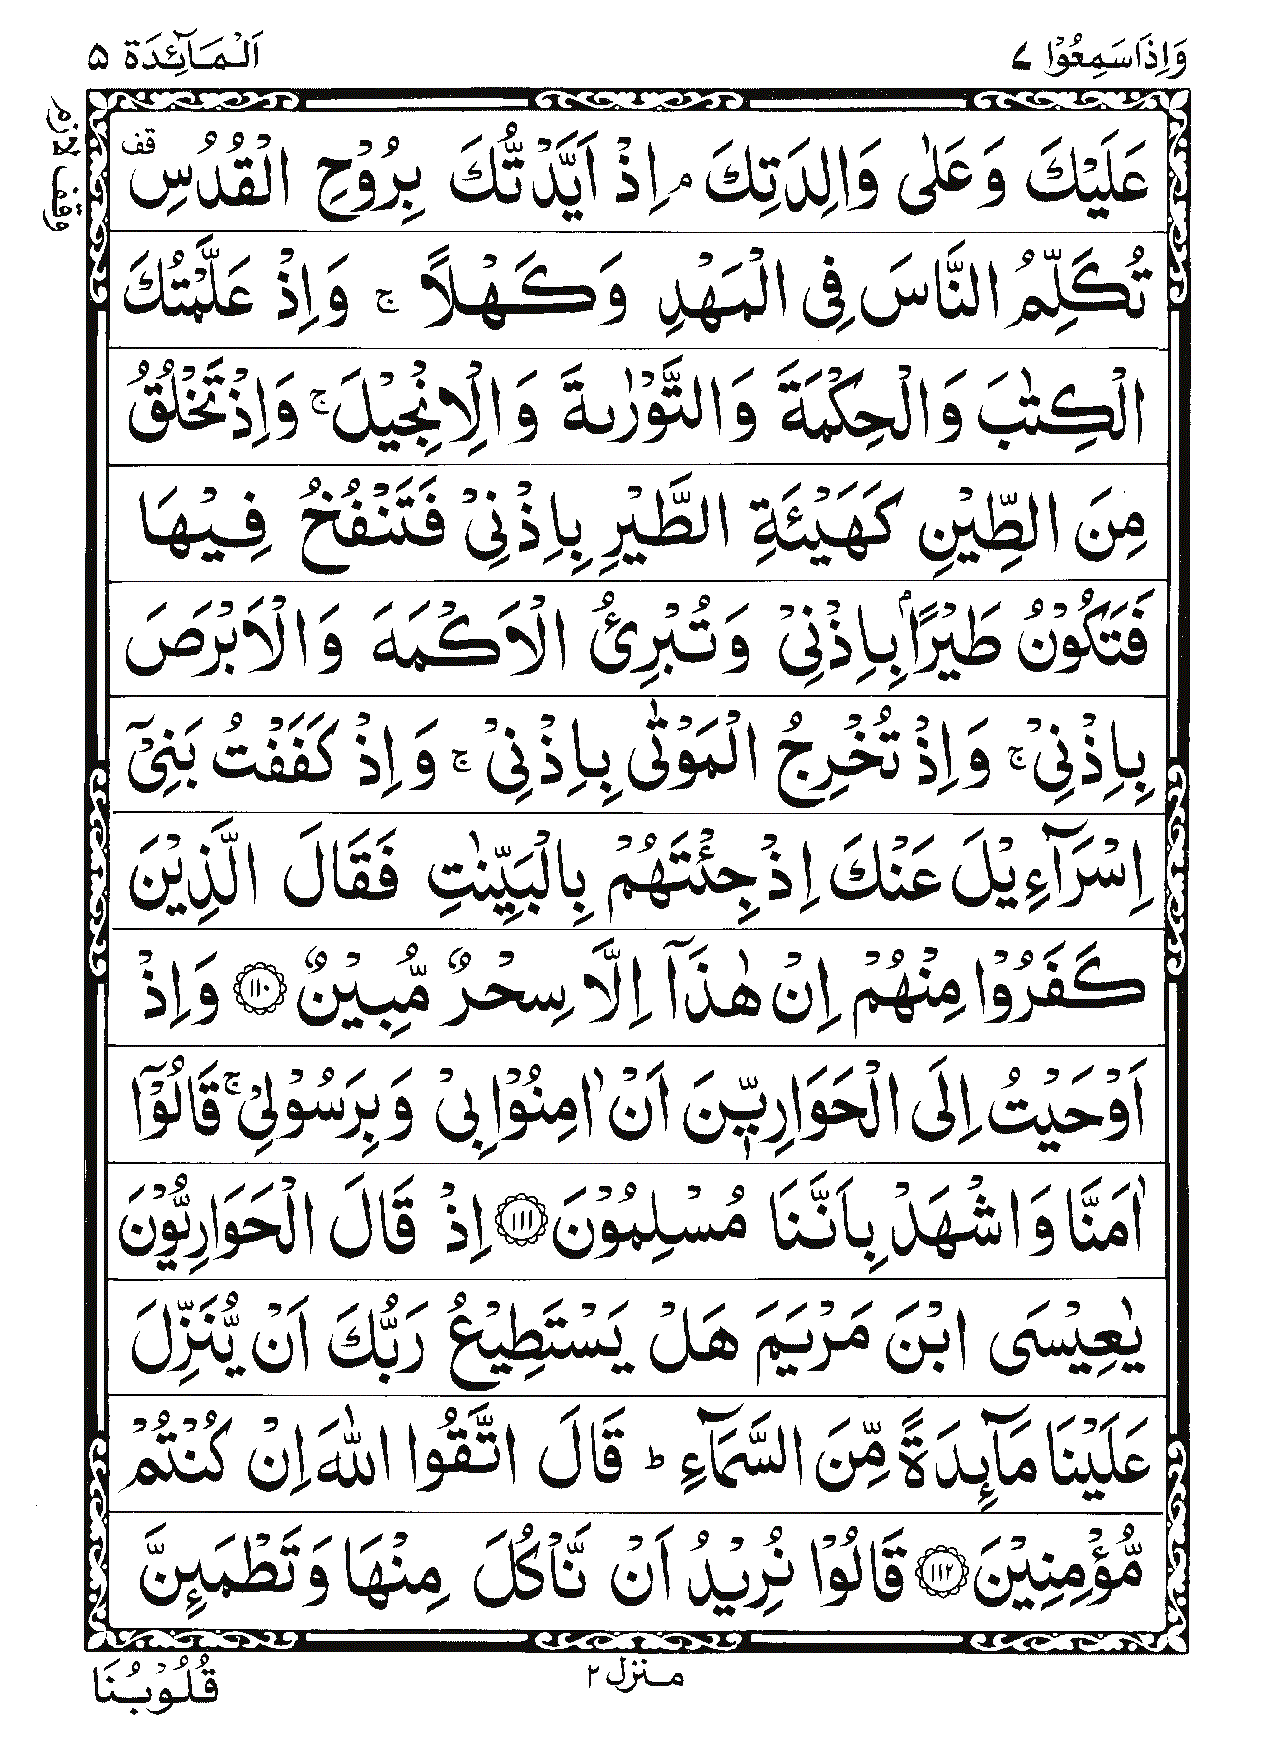 وَاِذَاسَمِعُوْا ٧ اَلْمَآئِدَة ٥
وقف لازم
عَلَيْكَ وَعَلٰى وَالِدَتِكَ ۘ اِذْ اَيَّدْتُّكَ بِرُوْحِ الْقُدُسِ قف
تُكَلِّمُ النَّاسَ فِى الْمَهْدِ وَكَهْلًا ۚ وَاِذْ عَلَّمْتُكَ
الْكِتٰبَ وَالْحِكْمَةَ وَالتَّوْرٰىةَ وَالْاِنْجِيْلَ ۚ وَاِذْ تَخْلُقُ
مِنَ الطِّيْنِ كَهَيْئَةِ الطَّيْرِ بِاِذْنِىْ فَتَنْفُخُ فِيْهَا
فَتَكُوْنُ طَيْرًاۢ بِاِذْنِىْ وَتُبْرِئُ الْاَكْمَهَ وَالْاَبْرَصَ
بِاِذْنِىْ ۚ وَاِذْ تُخْرِجُ الْمَوْتٰى بِاِذْنِىْ ۚ وَاِذْ كَفَفْتُ بَنِىْٓ
اِسْرَآءِيْلَ عَنْكَ اِذْ جِئْتَهُمْ بِالْبَيِّنٰتِ فَقَالَ الَّذِيْنَ
كَفَرُوْا مِنْهُمْ اِنْ هٰذَآ اِلَّا سِحْرٌ مُّبِيْنٌ ﴿١١٠﴾ وَاِذْ
اَوْحَيْتُ اِلَى الْحَوَارِيّٖنَ اَنْ اٰمِنُوْا بِىْ وَبِرَسُوْلِىْ ۚ قَالُوْٓا
اٰمَنَّا وَاشْهَدْ بِاَنَّنَا مُسْلِمُوْنَ ﴿١١١﴾ اِذْ قَالَ الْحَوَارِيُّوْنَ
يٰعِيْسَى ابْنَ مَرْيَمَ هَلْ يَسْتَطِيْعُ رَبُّكَ اَنْ يُّنَزِّلَ
عَلَيْنَا مَآئِدَةً مِّنَ السَّمَآءِ ؕ قَالَ اتَّقُوا اللّٰهَ اِنْ كُنْتُمْ
مُّؤْمِنِيْنَ ﴿١١٢﴾ قَالُوْا نُرِيْدُ اَنْ نَّاْكُلَ مِنْهَا وَتَطْمَئِنَّ
منزل ٢
قُلُوْبُنَا